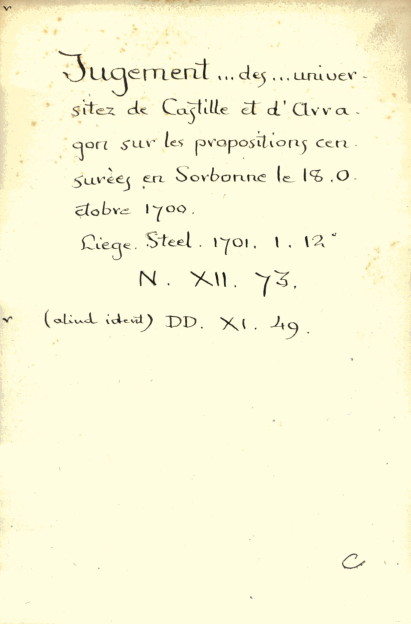 Jugement ... des ... univer-
sitez de Castille et d'Arra-
gon sur les propositions cen-
surées en Sorbonne le 18. O-
ctobre 1700.
Liege. Steel. 1701. 1. 12°
N. XII. 73.
(aliud ident) DD. XI. 49.
C